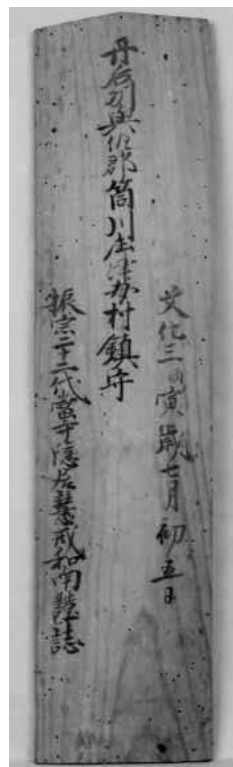 文化三丙寅歳七月初五日
丹后州與佐郡筒川庄津母村鎮守
振宗二十二代當寺隠居慧戒和南謹誌